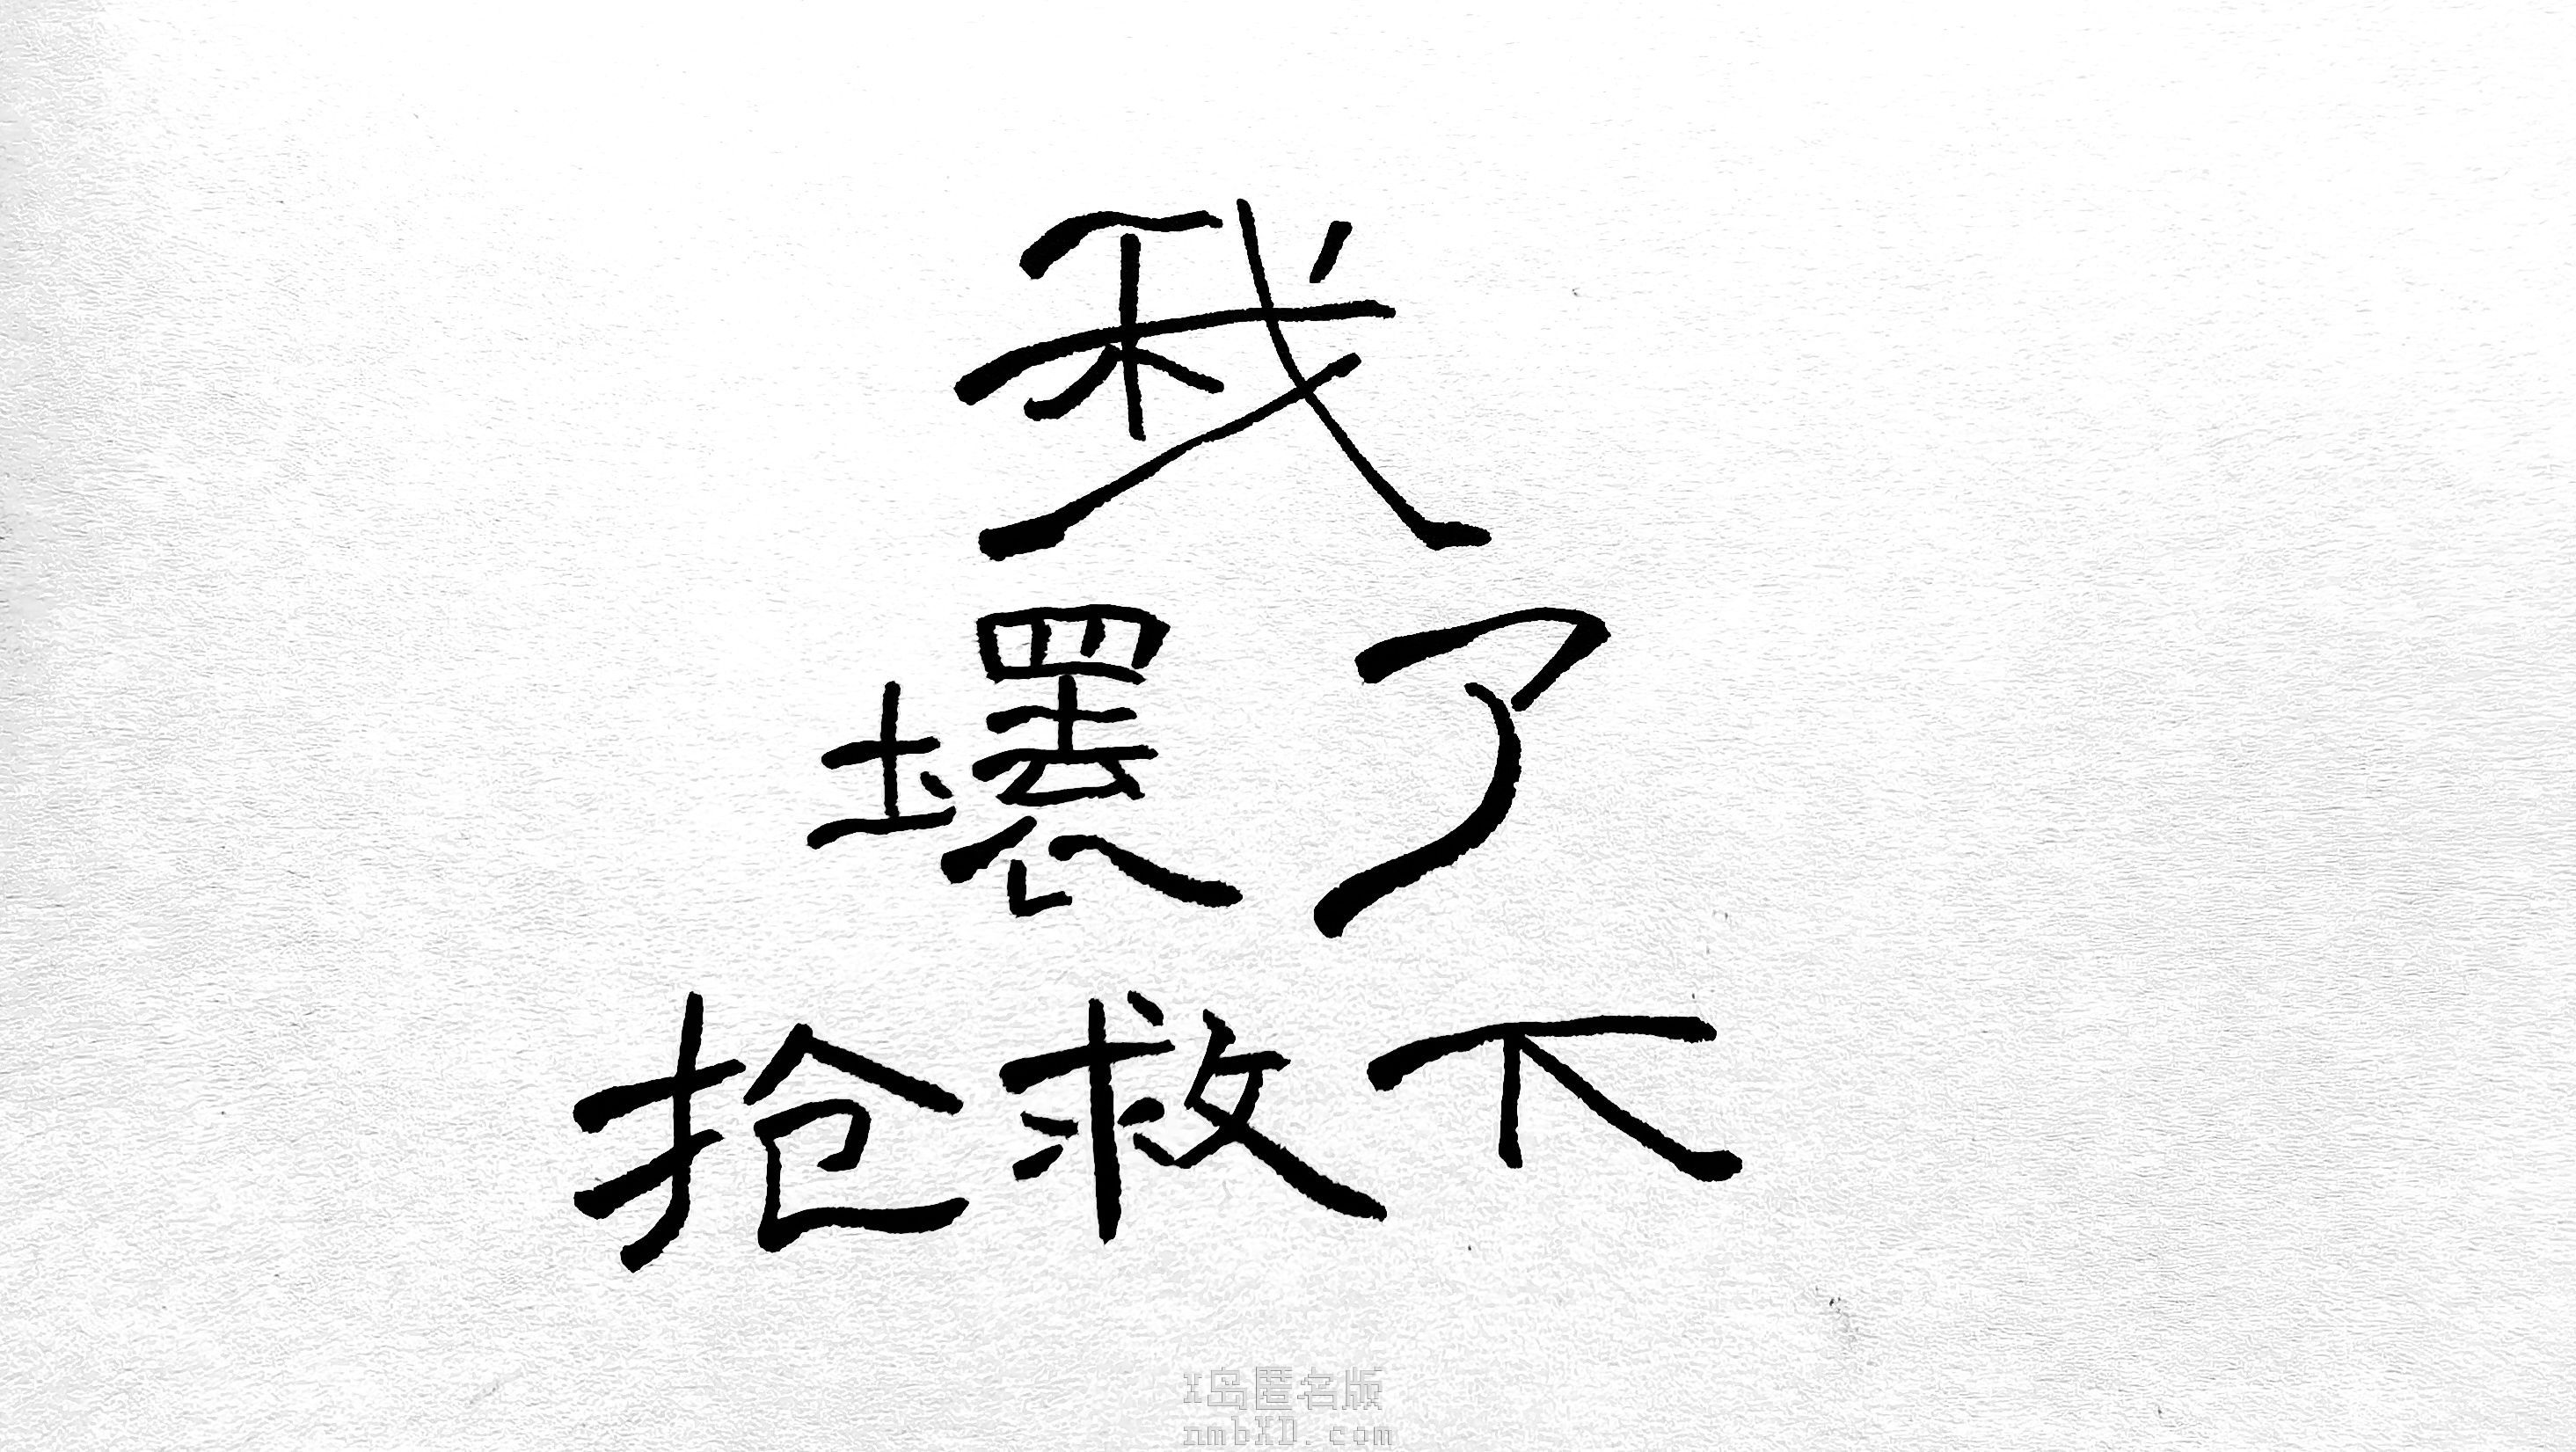 我
壞了
抢救下
X岛匿名版
nmbXD.com